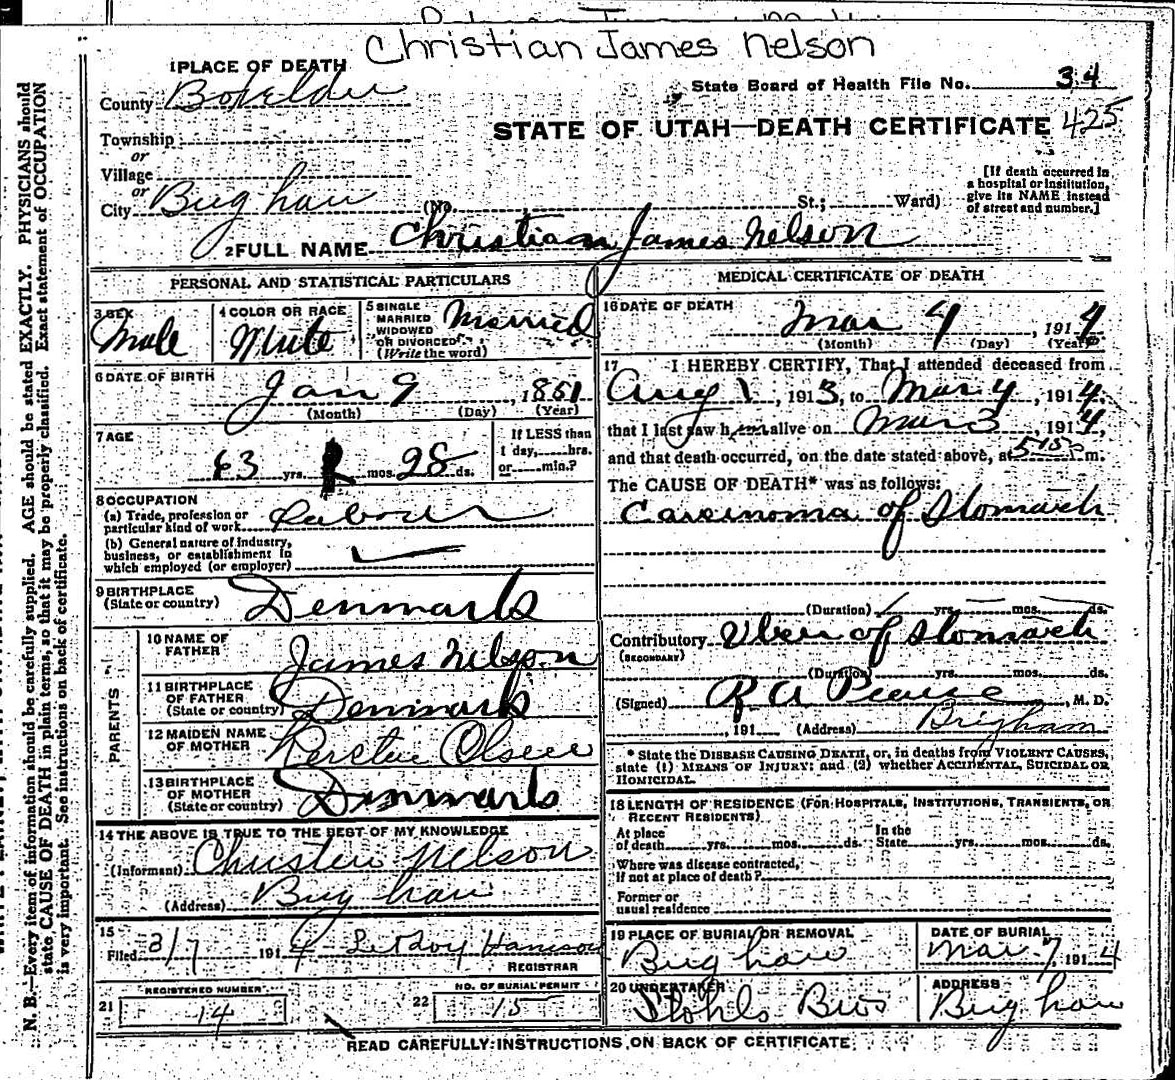 Christian James Nelson
1 PLACE OF DEATH
State Board of Health File No. 34
County Boxelder
STATE OF UTAH—DEATH CERTIFICATE 425
Township
or
Village
or
City Brigham (No. St.; Ward)
[If death occurred in
a hospital or institution,
give its NAME instead
of street and number.]
2 FULL NAME Christian James Nelson
PERSONAL AND STATISTICAL PARTICULARS
3 SEX
Male
4 COLOR OR RACE
White
5 SINGLE
MARRIED
WIDOWED
OR DIVORCED
(Write the word)
Married
6 DATE OF BIRTH
Jan 9, 1851
(Month) (Day) (Year)
7 AGE
63 yrs. mos. 28 ds.
If LESS than
1 day, hrs.
or min.?
8 OCCUPATION
(a) Trade, profession or
particular kind of work Labour
(b) General nature of industry,
business, or establishment in
which employed (or employer)
9 BIRTHPLACE
(State or country) Denmark
PARENTS
10 NAME OF
FATHER James Nelson
11 BIRTHPLACE
OF FATHER
(State or country) Denmark
12 MAIDEN NAME
OF MOTHER Olsen
13 BIRTHPLACE
OF MOTHER
(State or country) Denmark
14 THE ABOVE IS TRUE TO THE BEST OF MY KNOWLEDGE
(Informant) Nelson
(Address) Brigham
15
Filed 3/7 1914
REGISTRAR
REGISTERED NUMBER
21 14
NO. OF BURIAL PERMIT
22 15
MEDICAL CERTIFICATE OF DEATH
16 DATE OF DEATH
Mar 4, 1914
(Month) (Day) (Year)
17 I HEREBY CERTIFY, That I attended deceased from
Aug 1, 1913, to Mar 4, 1914,
that I last saw him alive on Mar 3, 1914,
and that death occurred, on the date stated above, at 515 m.
The CAUSE OF DEATH* was as follows:
Carcinoma of Stomach
(Duration) yrs. mos. ds.
Contributory Ulcer of Stomach
(SECONDARY)
(Duration) yrs. mos. ds.
(Signed) R A Pearse, M. D.
, 191 (Address) Brigham
* State the DISEASE CAUSING DEATH, or, in deaths from VIOLENT CAUSES,
state (1) MEANS OF INJURY; and (2) whether ACCIDENTAL, SUICIDAL OR
HOMICIDAL.
18 LENGTH OF RESIDENCE (FOR HOSPITALS, INSTITUTIONS, TRANSIENTS, OR
RECENT RESIDENTS)
At place
of death yrs. mos. ds.
In the
State yrs. mos. ds.
Where was disease contracted,
If not at place of death?
Former or
usual residence
19 PLACE OF BURIAL OR REMOVAL
Brigham
DATE OF BURIAL
Mar 7, 1914
20 UNDERTAKER
Stohls Bros
ADDRESS
Brigham
READ CAREFULLY INSTRUCTIONS ON BACK OF CERTIFICATE
N. B.—Every item of information should be carefully supplied. AGE should be stated EXACTLY. PHYSICIANS should
state CAUSE OF DEATH in plain terms, so that it may be properly classified. Exact statement of OCCUPATION
is very important. See instructions on back of certificate.